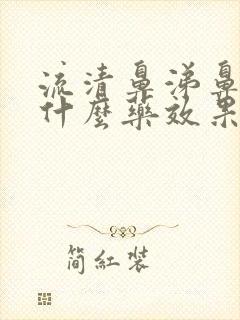 流清鼻涕鼻
什麼藥效果
簡紅裝